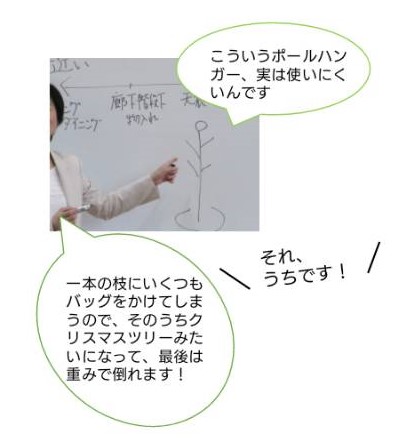 こういうポールハン
ガー、実は使いにく
いんです
近い
廊下階段下
物入れ
ダイニング
それ、
うちです！
一本の枝にいくつも
バッグをかけてしま
うので、そのうちク
リスマスツリーみた
いになって、最後は
重みで倒れます！